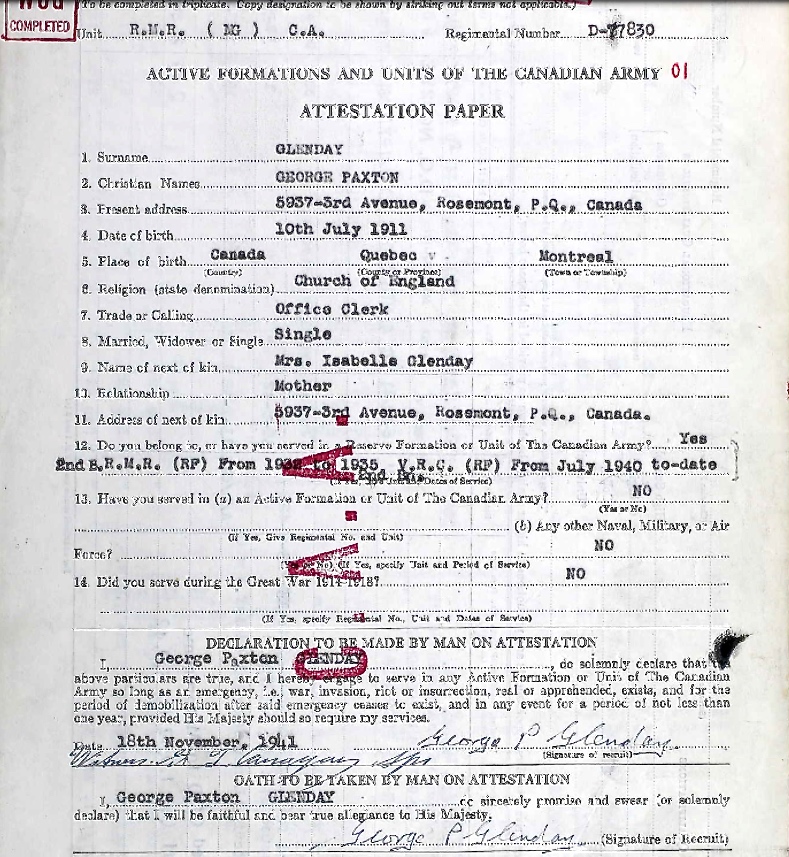 COMPLETED
(To be completed in triplicate. Copy designation to be shown by striking out terms not applicable.)
Unit R.M.R. ( MG ) C.A. Regimental Number D-77830
ACTIVE FORMATIONS AND UNITS OF THE CANADIAN ARMY 01
ATTESTATION PAPER
1. Surname GLENDAY
2. Christian Names GEORGE PAXTON
3. Present address 5937-3rd Avenue, Rosemont, P.Q., Canada
4. Date of birth 10th July 1911
5. Place of birth Canada Quebec Montreal
(Country) (County or Province) (Town or Township)
6. Religion (state denomination) Church of England
7. Trade or Calling Office Clerk
8. Married, Widower or Single Single
9. Name of next of kin Mrs. Isabelle Glenday
10. Relationship Mother
11. Address of next of kin 5937-3rd Avenue, Rosemont, P.Q., Canada.
12. Do you belong to, or have you served in a Reserve Formation or Unit of The Canadian Army? Yes
2nd B.R.M.R. (RF) From to 1935 V.R.C. (RF) From July 1940 to-date
(If Yes, give Unit and Dates of Service)
13. Have you served in (a) an Active Formation or Unit of The Canadian Army? NO
(Yes or No)
(b) Any other Naval, Military, or Air
(If Yes, Give Regimental No. and Unit)
Force? NO
(Yes or No) (If Yes, specify Unit and Period of Service)
14. Did you serve during the Great War 1914-1918? NO
(If Yes, specify Regimental No., Unit and Dates of Service)
DECLARATION TO BE MADE BY MAN ON ATTESTATION
I, George Paxton GLENDAY, do solemnly declare that the
above particulars are true, and I hereby engage to serve in any Active Formation or Unit of The Canadian
Army so long as an emergency, i.e., war, invasion, riot or insurrection, real or apprehended, exists, and for the
period of demobilization after said emergency ceases to exist, and in any event for a period of not less than
one year, provided His Majesty should so require my services.
Date 18th November, 1941 George P Glenday
(Signature of recruit)
Witness
OATH TO BE TAKEN BY MAN ON ATTESTATION
I, George Paxton GLENDAY do sincerely promise and swear (or solemnly
declare) that I will be faithful and bear true allegiance to His Majesty.
George P Glenday (Signature of Recruit)